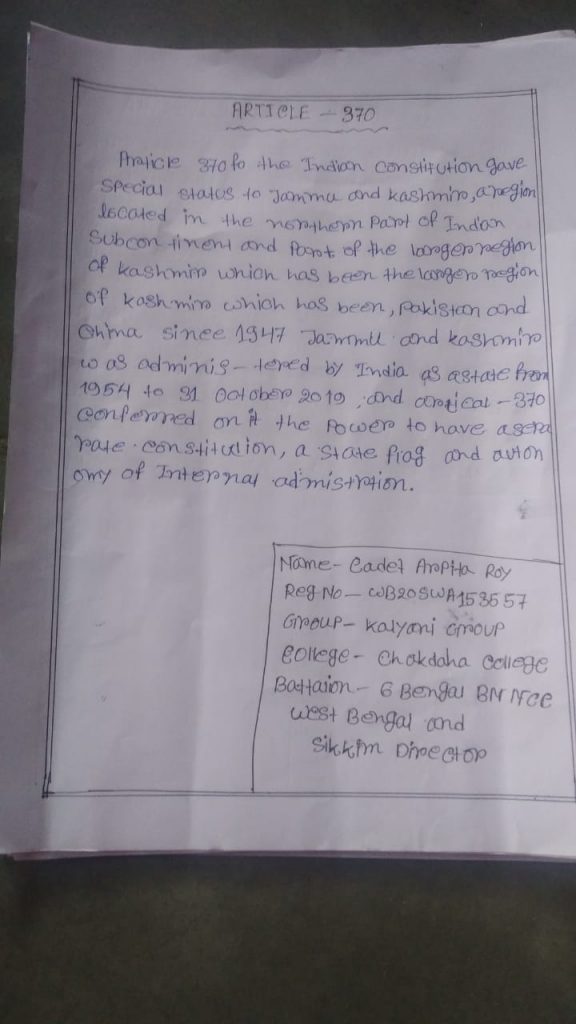 ARTICLE - 370
Article 370 fo the Indian constitution gave
special status to Jammu and kashmir, a region
located in the northern part of Indian
Subcon tinent and Part of the larger region
of kashmir which has been the larger region
of kashmir which has been, pakistan and
China since 1947 Jammu and kashmir
was adminis-tered by India as a state from
1954 to 31 october 2019, and artical-370
conferred on it the power to have a sepa
rate constitution, a state flag and auton
omy of Internal admistrtion.
Name- Cadet Arpita Roy
Reg No- WB20SWA153557
Group- Kalyani Group
College- Chakdaha College
Battaion- 6 Bengal BN NCC
West Bengal and
Sikkim Director